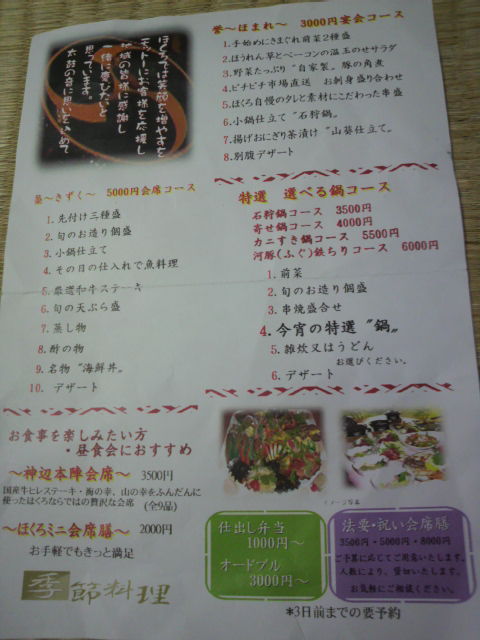 ほくろでは笑顔を増やすを
モットーにお客様を応援し
地域の皆様に感謝し
一緒に喜びたいと
思っています。
太鼓の音に思いを込めて
誉〜ほまれ〜 3000円宴会コース
1. 手始めにきまぐれ前菜2種盛
2. ほうれん草とベーコンの温玉のせサラダ
3. 野菜たっぷり〝自家製〟豚の角煮
4. ピチピチ市場直送 お刺身盛り合わせ
5. ほくろ自慢のタレと素材にこだわった串盛
6. 小鍋仕立て〝石狩鍋〟
7. 揚げおにぎり茶漬け〝山葵仕立て〟
8. 別腹デザート
築〜きずく〜 5000円会席コース
1. 先付け三種盛
2. 旬のお造り個盛
3. 小鍋仕立て
4. その日の仕入れで魚料理
5. 厳選和牛ステーキ
6. 旬の天ぷら盛
7. 蒸し物
8. 酢の物
9. 名物〝海鮮丼〟
10. デザート
特選 選べる鍋コース
石狩鍋コース 3500円
寄せ鍋コース 4000円
カニすき鍋コース 5500円
河豚(ふぐ)鉄ちりコース 6000円
1. 前菜
2. 旬のお造り個盛
3. 串焼盛合せ
4. 今宵の特選〝鍋〟
5. 雑炊又はうどん
お選びください。
6. デザート
お食事を楽しみたい方
・昼食会におすすめ
〜神辺本陣会席〜 3500円
国産牛ヒレステーキ・海の幸、山の幸をふんだんに
使ったほくろならではの贅沢な会席 (全9品)
〜ほくろミニ会席膳〜 2000円
お手軽でもきっと満足
季節料理
イメージ写真
仕出し弁当
1000円〜
オードブル
3000円〜
法要・祝い会席膳
3500円・5000円・8000円
ご予算に応じてご用意いたします。
人数により、貸切いたします。
お気軽にご相談ください。
*3日前までの要予約